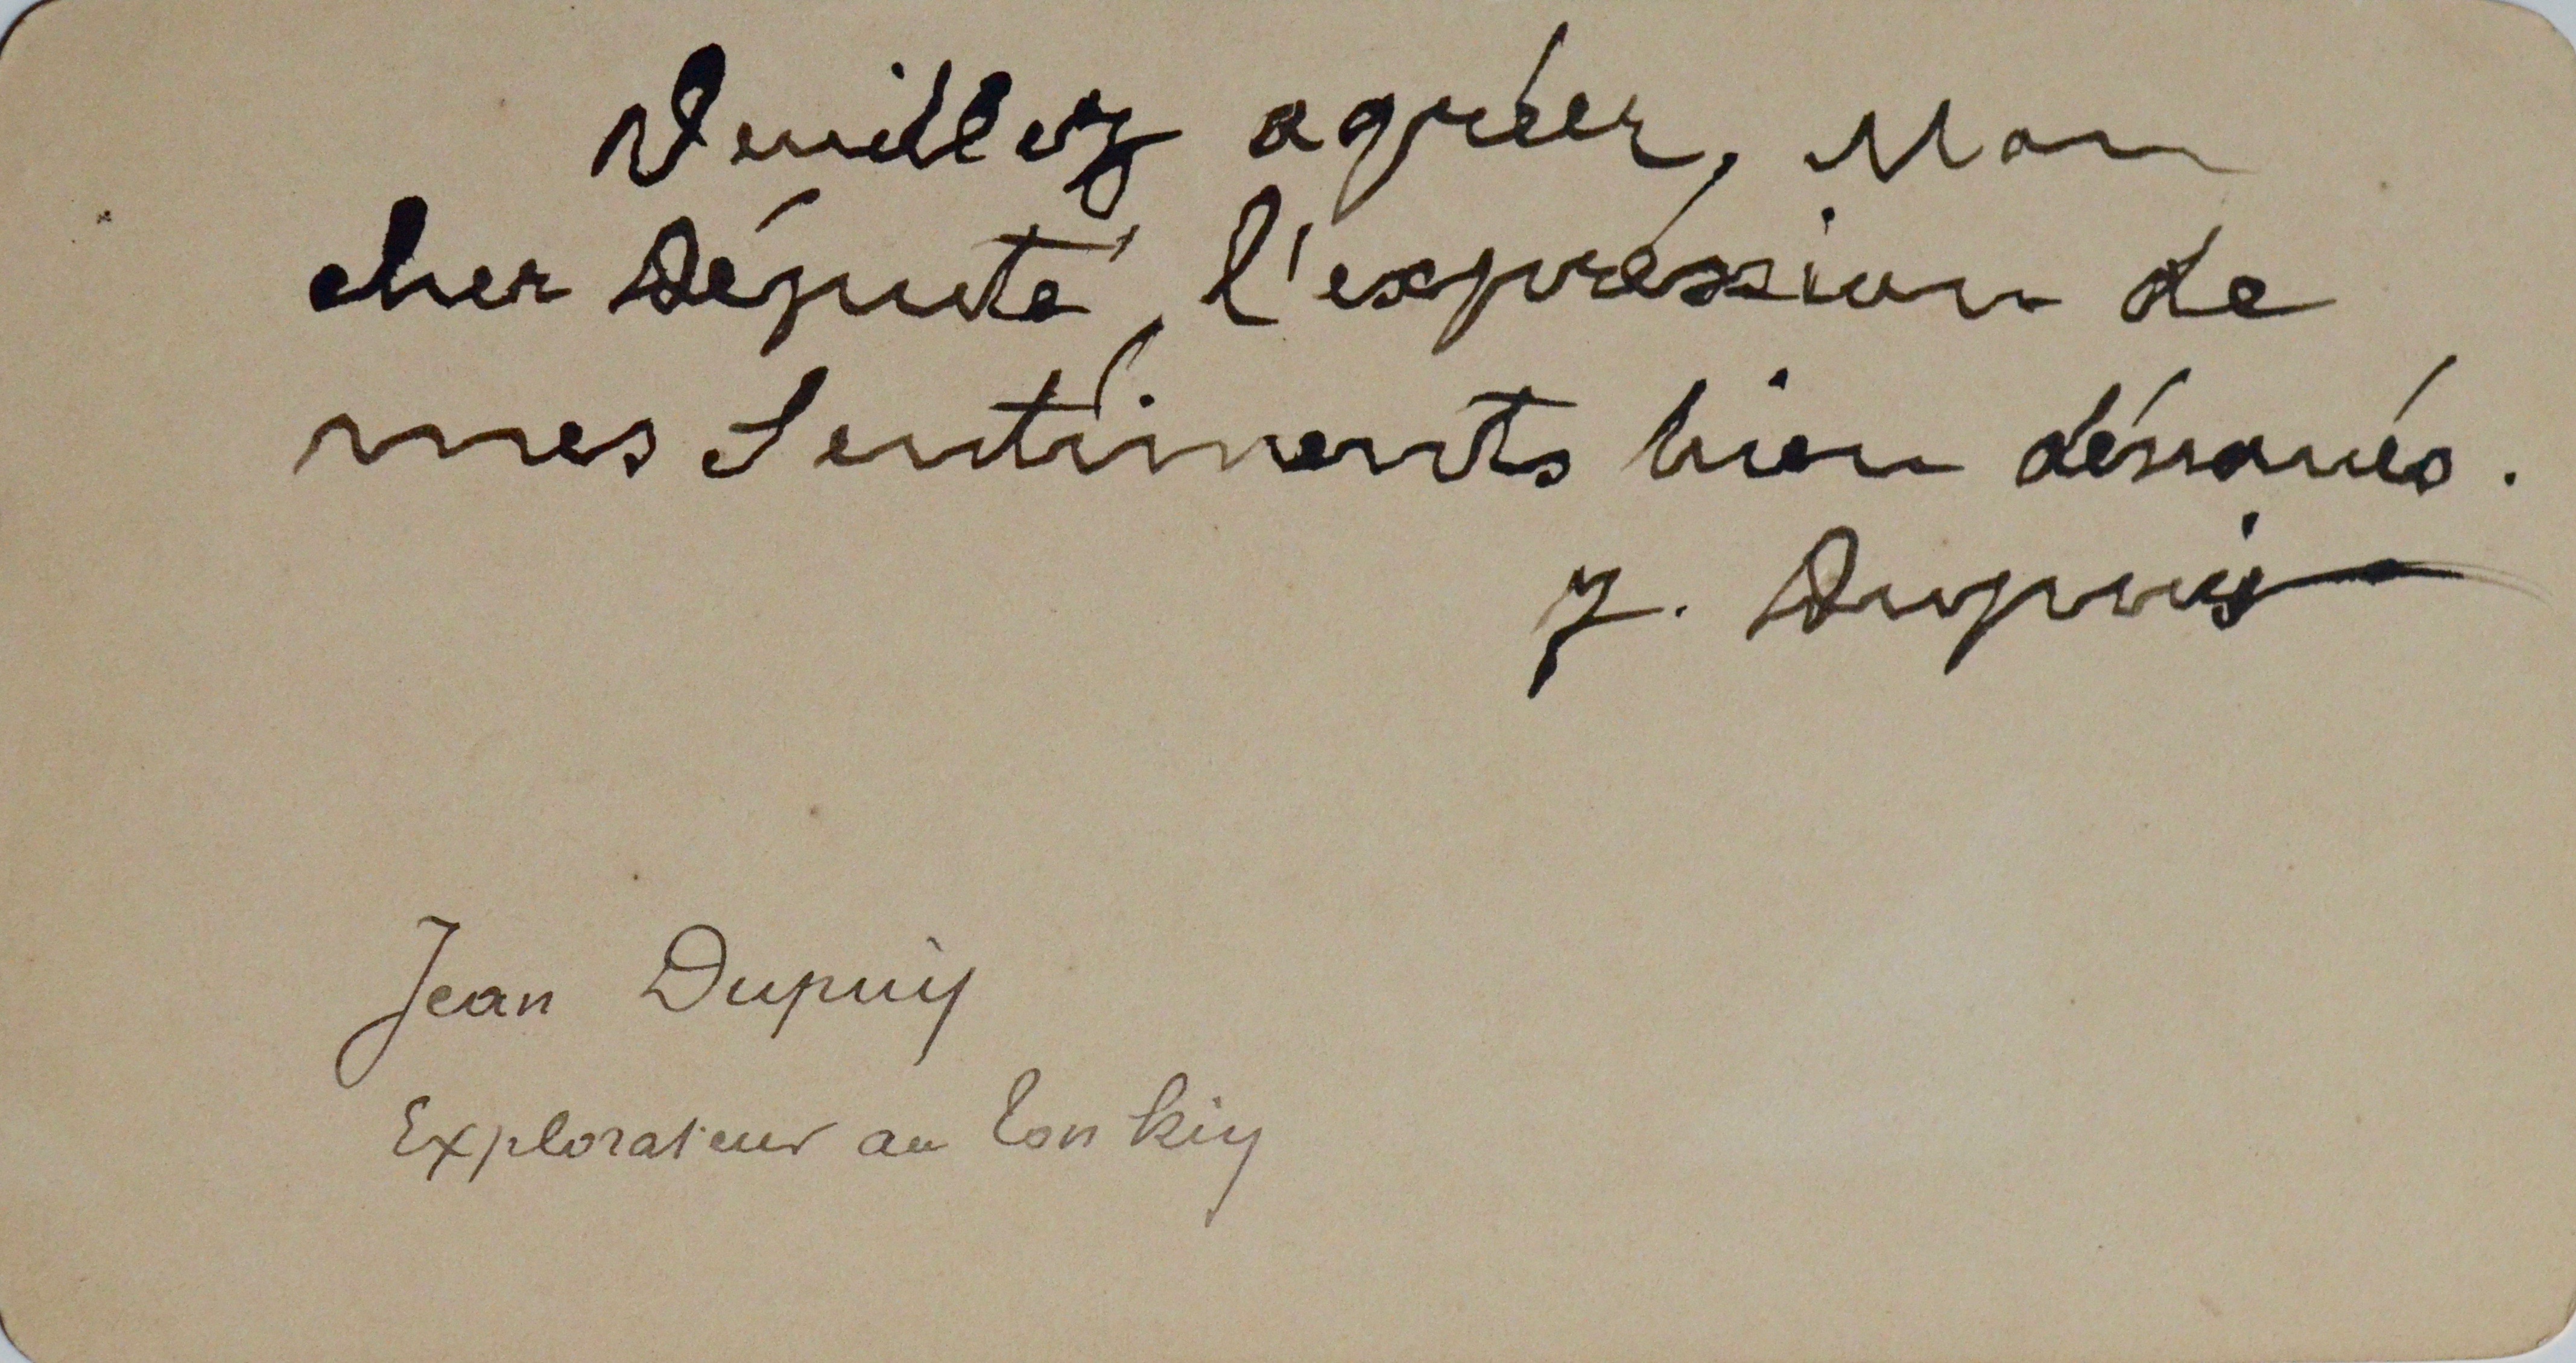 Veuillez agréer, Mon
cher Député, l'expréssion de
mes Sentiments bien dévoués.
J. Dupuis
Jean Dupuis
Explorateur au Tonkin